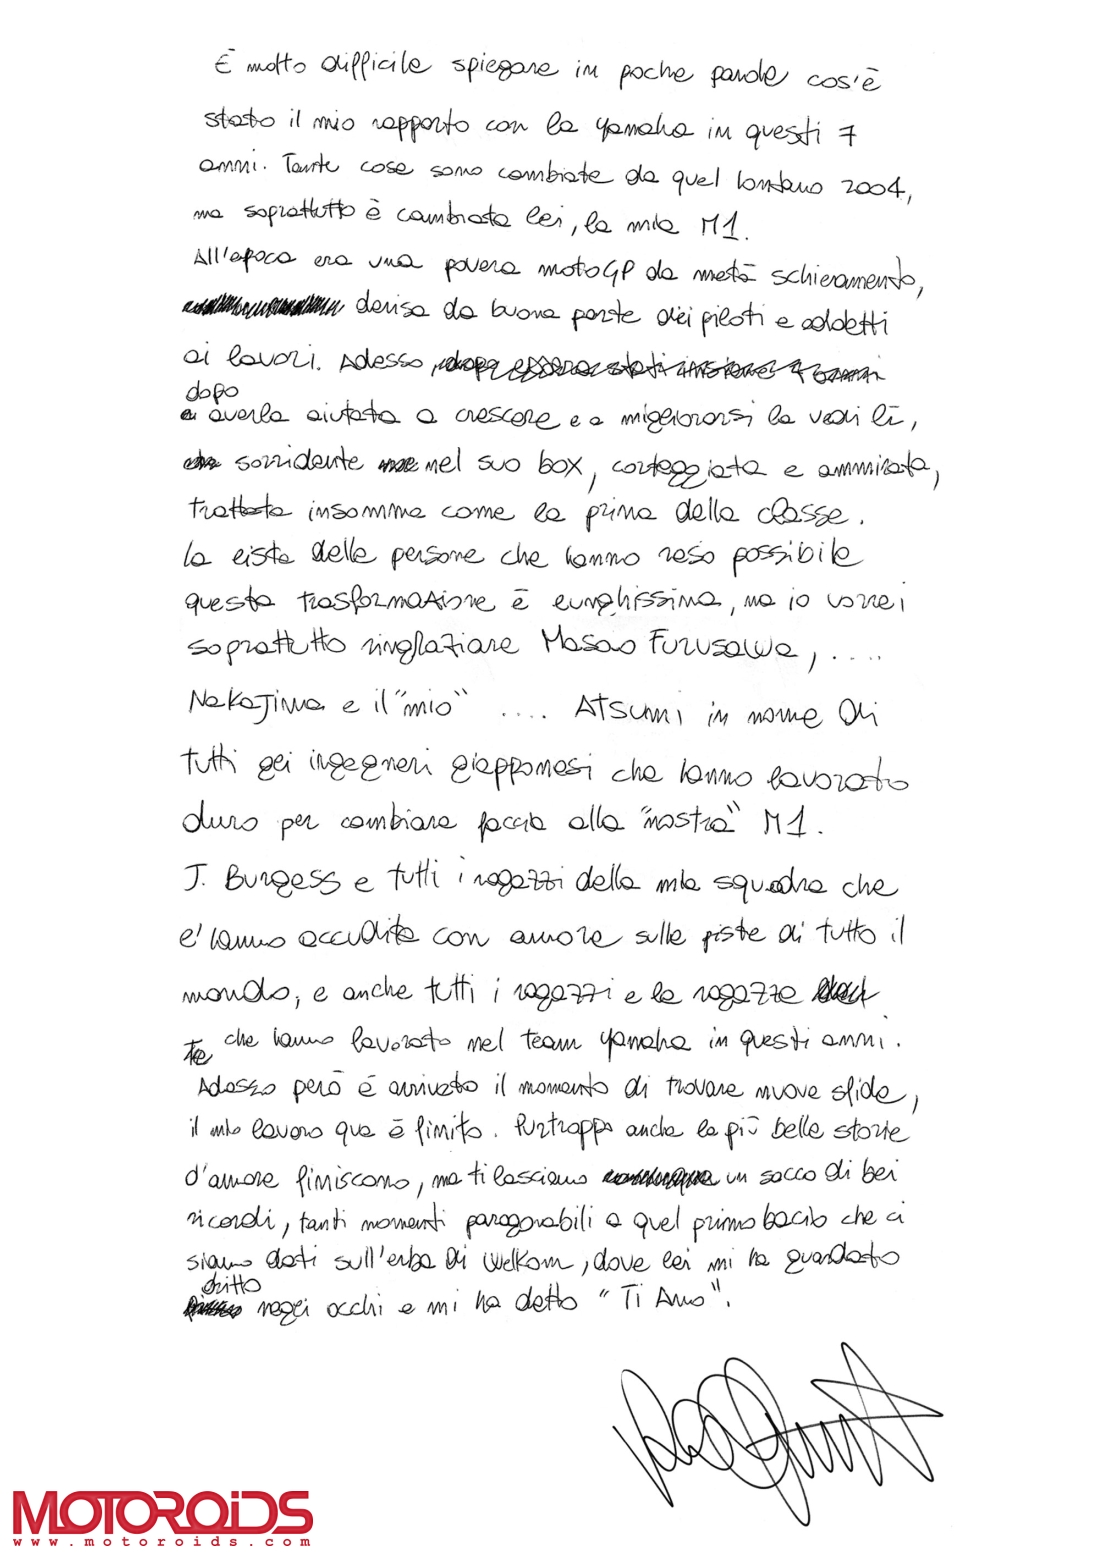 È molto difficile spiegare in poche parole cos'è
stato il mio rapporto con la Yamaha in questi 7
anni. Tante cose sono cambiate da quel lontano 2004,
ma soprattutto è cambiata lei, la mia M1.
All'epoca era una povera motoGP da metà schieramento,
derisa da buona parte dei piloti e addetti
ai lavori. Adesso, dopo essere stati insieme 7 anni
dopo
averla aiutata a crescere e a migliorarsi la vedi lì,
sorridente nel suo box, corteggiata e ammirata,
trattata insomma come la prima della classe.
la lista delle persone che hanno reso possibile
questa trasformazione è lunghissima, ma io vorrei
soprattutto ringraziare Masao Furusawa, ....
Nakajima e il "mio" .... Atsumi in nome di
tutti gli ingegneri giapponesi che hanno lavorato
duro per cambiare faccia alla "nostra" M1.
J. Burgess e tutti i ragazzi della mia squadra che
l'hanno accudita con amore sulle piste di tutto il
mondo, e anche tutti i ragazzi e le ragazze
che hanno lavorato nel team Yamaha in questi anni.
Adesso però è arrivato il momento di trovare nuove sfide,
il mio lavoro qua è finito. Purtroppo anche le più belle storie
d'amore finiscono, ma ti lasciano un sacco di bei
ricordi, tanti momenti paragonabili a quel primo bacio che ci
siamo dati sull'erba di Welkom, dove lei mi ha guardato
dritto
negli occhi e mi ha detto "Ti Amo".
MOTOROiDS
www.motoroids.com